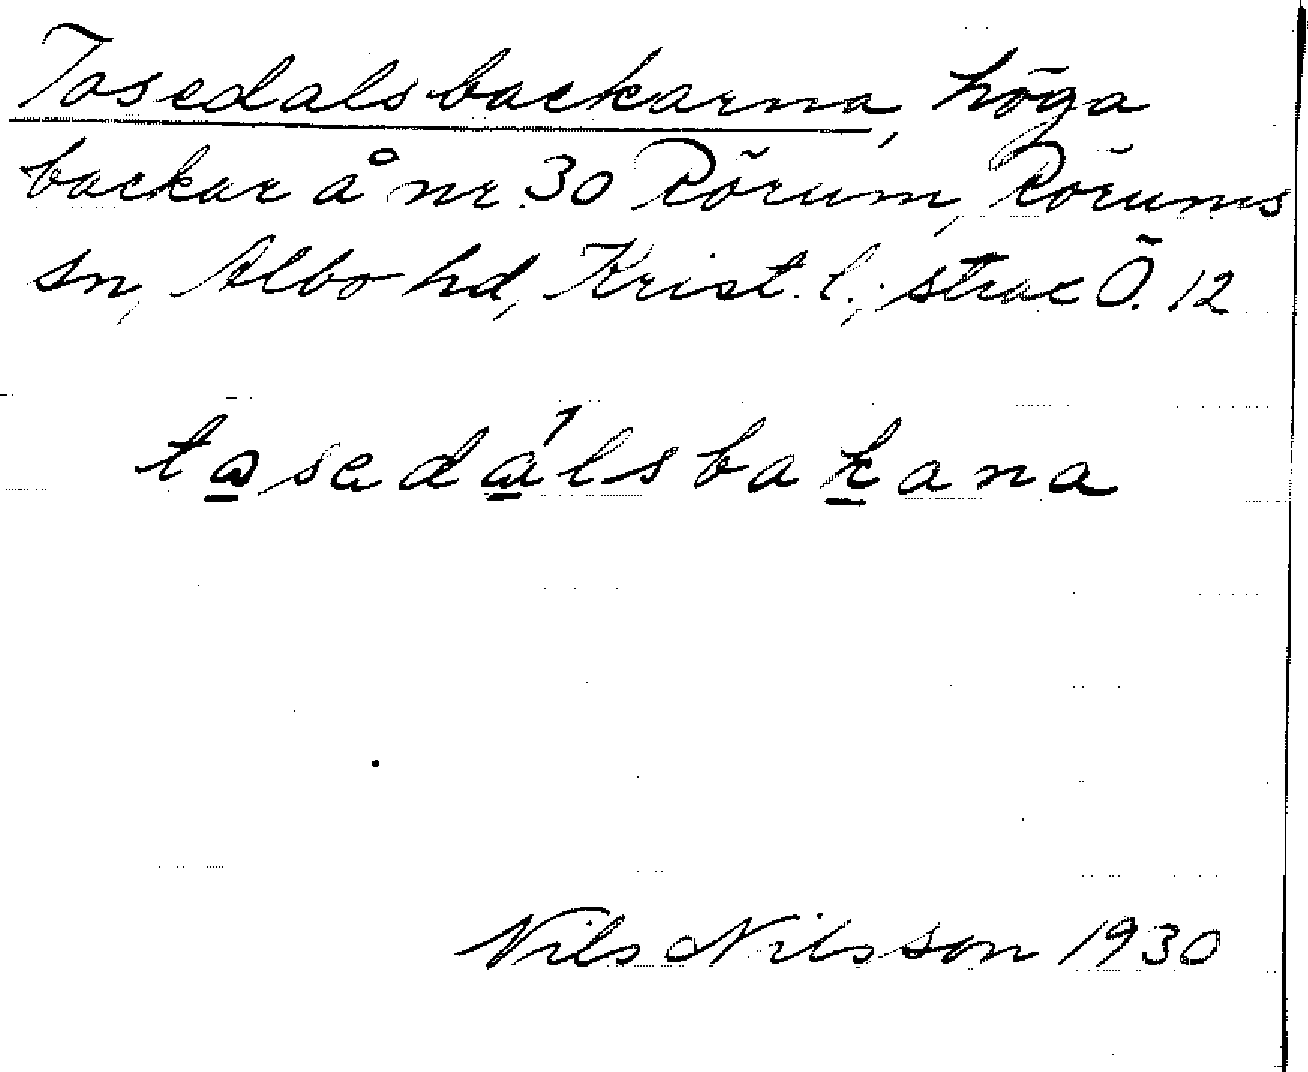 Tosedalsbackarna, höga
backar å nr. 30 Rörum, Rörums
sn, Albo hd, Krist. l.; strac Ö. 12
tasedálsbakana
Nils Nilsson 1930